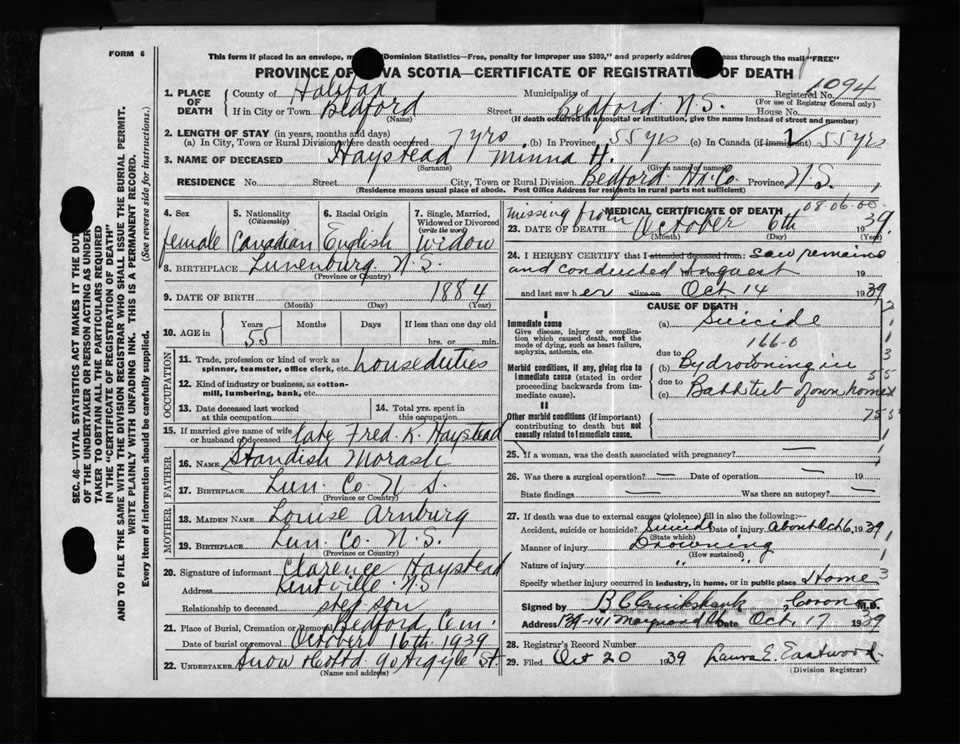 FORM 6
This form if placed in an envelope, Dominion Statistics—Free, penalty for improper use $300," and properly pass through the mail "FREE"
PROVINCE OF VA SCOTIA—CERTIFICATE OF REGISTRATION OF DEATH
1094
1. PLACE OF DEATH
County of Halifax Municipality of Registered No.
(For use of Registrar General only)
If in City or Town Bedford Street Bedford N.S. House No.
(Name) (If death occurred in a hospital or institution, give the name instead of street and number)
2. LENGTH OF STAY (in years, months and days)
(a) In City, Town or Rural Division where death occurred 7 yrs (b) In Province 55 yrs (c) In Canada (if immigrant) 55 yrs
3. NAME OF DECEASED Haystead Minna H.
(Surname) (Given name or names)
RESIDENCE No. Street City, Town or Rural Division Bedford Hx Co Province N.S.
(Residence means usual place of abode. Post Office Address for residents in rural parts not sufficient)
4. Sex female
5. Nationality (Citizenship) Canadian
6. Racial Origin English
7. Single, Married, Widowed or Divorced (write the word) Widow
8. BIRTHPLACE Lunenburg N.S.
(Province or Country)
9. DATE OF BIRTH 1884
(Month) (Day) (Year)
10. AGE in Years 55 Months Days If less than one day old
hrs. or min.
OCCUPATION
11. Trade, profession or kind of work as spinner, teamster, office clerk, etc. house duties
12. Kind of industry or business, as cotton-mill, lumbering, bank, etc.
13. Date deceased last worked at this occupation
14. Total yrs. spent in this occupation
15. If married give name of wife or husband of deceased late Fred K. Haystead
FATHER
16. Name Standish Morash
17. BIRTHPLACE Lun. Co. N S.
(Province or Country)
MOTHER
18. MAIDEN NAME Louise Arnburg
19. BIRTHPLACE Lun. Co. N.S.
(Province or Country)
20. Signature of informant Clarence Haystead
Address Kentville N S
Relationship to deceased step son
21. Place of Burial, Cremation or Removal Bedford Cem.
Date of burial or removal October 16th 1939
22. UNDERTAKER Snow & Co Ltd 90 Argyle St.
(Name and address)
missing from MEDICAL CERTIFICATE OF DEATH 08.06.00
23. DATE OF DEATH October 6th 1939
(Month) (Day) (Year)
24. I HEREBY CERTIFY that I attended deceased from: saw remains
and conducted Inquest 19
and last saw her alive on Oct 14 1939
CAUSE OF DEATH
I
Immediate cause
Give disease, injury or complication which caused death, not the mode of dying, such as heart failure, asphyxia, asthenia, etc.
(a) Suicide
166-0
Morbid conditions, if any, giving rise to immediate cause (stated in order proceeding backwards from immediate cause).
due to
(b) By drowning in
due to
(c) Bathtub of own home
II
Other morbid conditions (if important) contributing to death but not causally related to immediate cause.
25. If a woman, was the death associated with pregnancy? —
26. Was there a surgical operation? — Date of operation —
State findings — Was there an autopsy? —
27. If death was due to external causes (violence) fill in also the following:—
Accident, suicide or homicide? Suicide Date of injury about Oct 6, 1939
(State which)
Manner of injury Drowning
(How sustained)
Nature of injury " "
Specify whether injury occurred in industry, in home, or in public place Home
Signed by Coroner M.D.
Address 139-141 Maynard St. Date Oct. 17 1939
28. Registrar's Record Number
29. Filed Oct 20 1939 Laura E. Eastwood
(Division Registrar)
SEC. 46—VITAL STATISTICS ACT MAKES IT THE DUTY
OF THE UNDERTAKER OR PERSON ACTING AS UNDER-
TAKER TO OBTAIN ALL THE PARTICULARS REQUIRED
IN THE "CERTIFICATE OF REGISTRATION OF DEATH"
AND TO FILE THE SAME WITH THE DIVISION REGISTRAR WHO SHALL ISSUE THE BURIAL PERMIT.
WRITE PLAINLY WITH UNFADING INK. THIS IS A PERMANENT RECORD.
Every item of information should be carefully supplied. (See reverse side for instructions.)